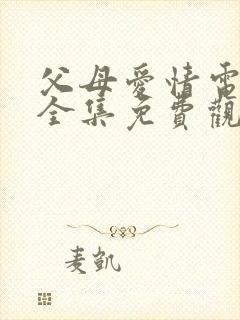 父母愛情電
全集免費觀
麦凱